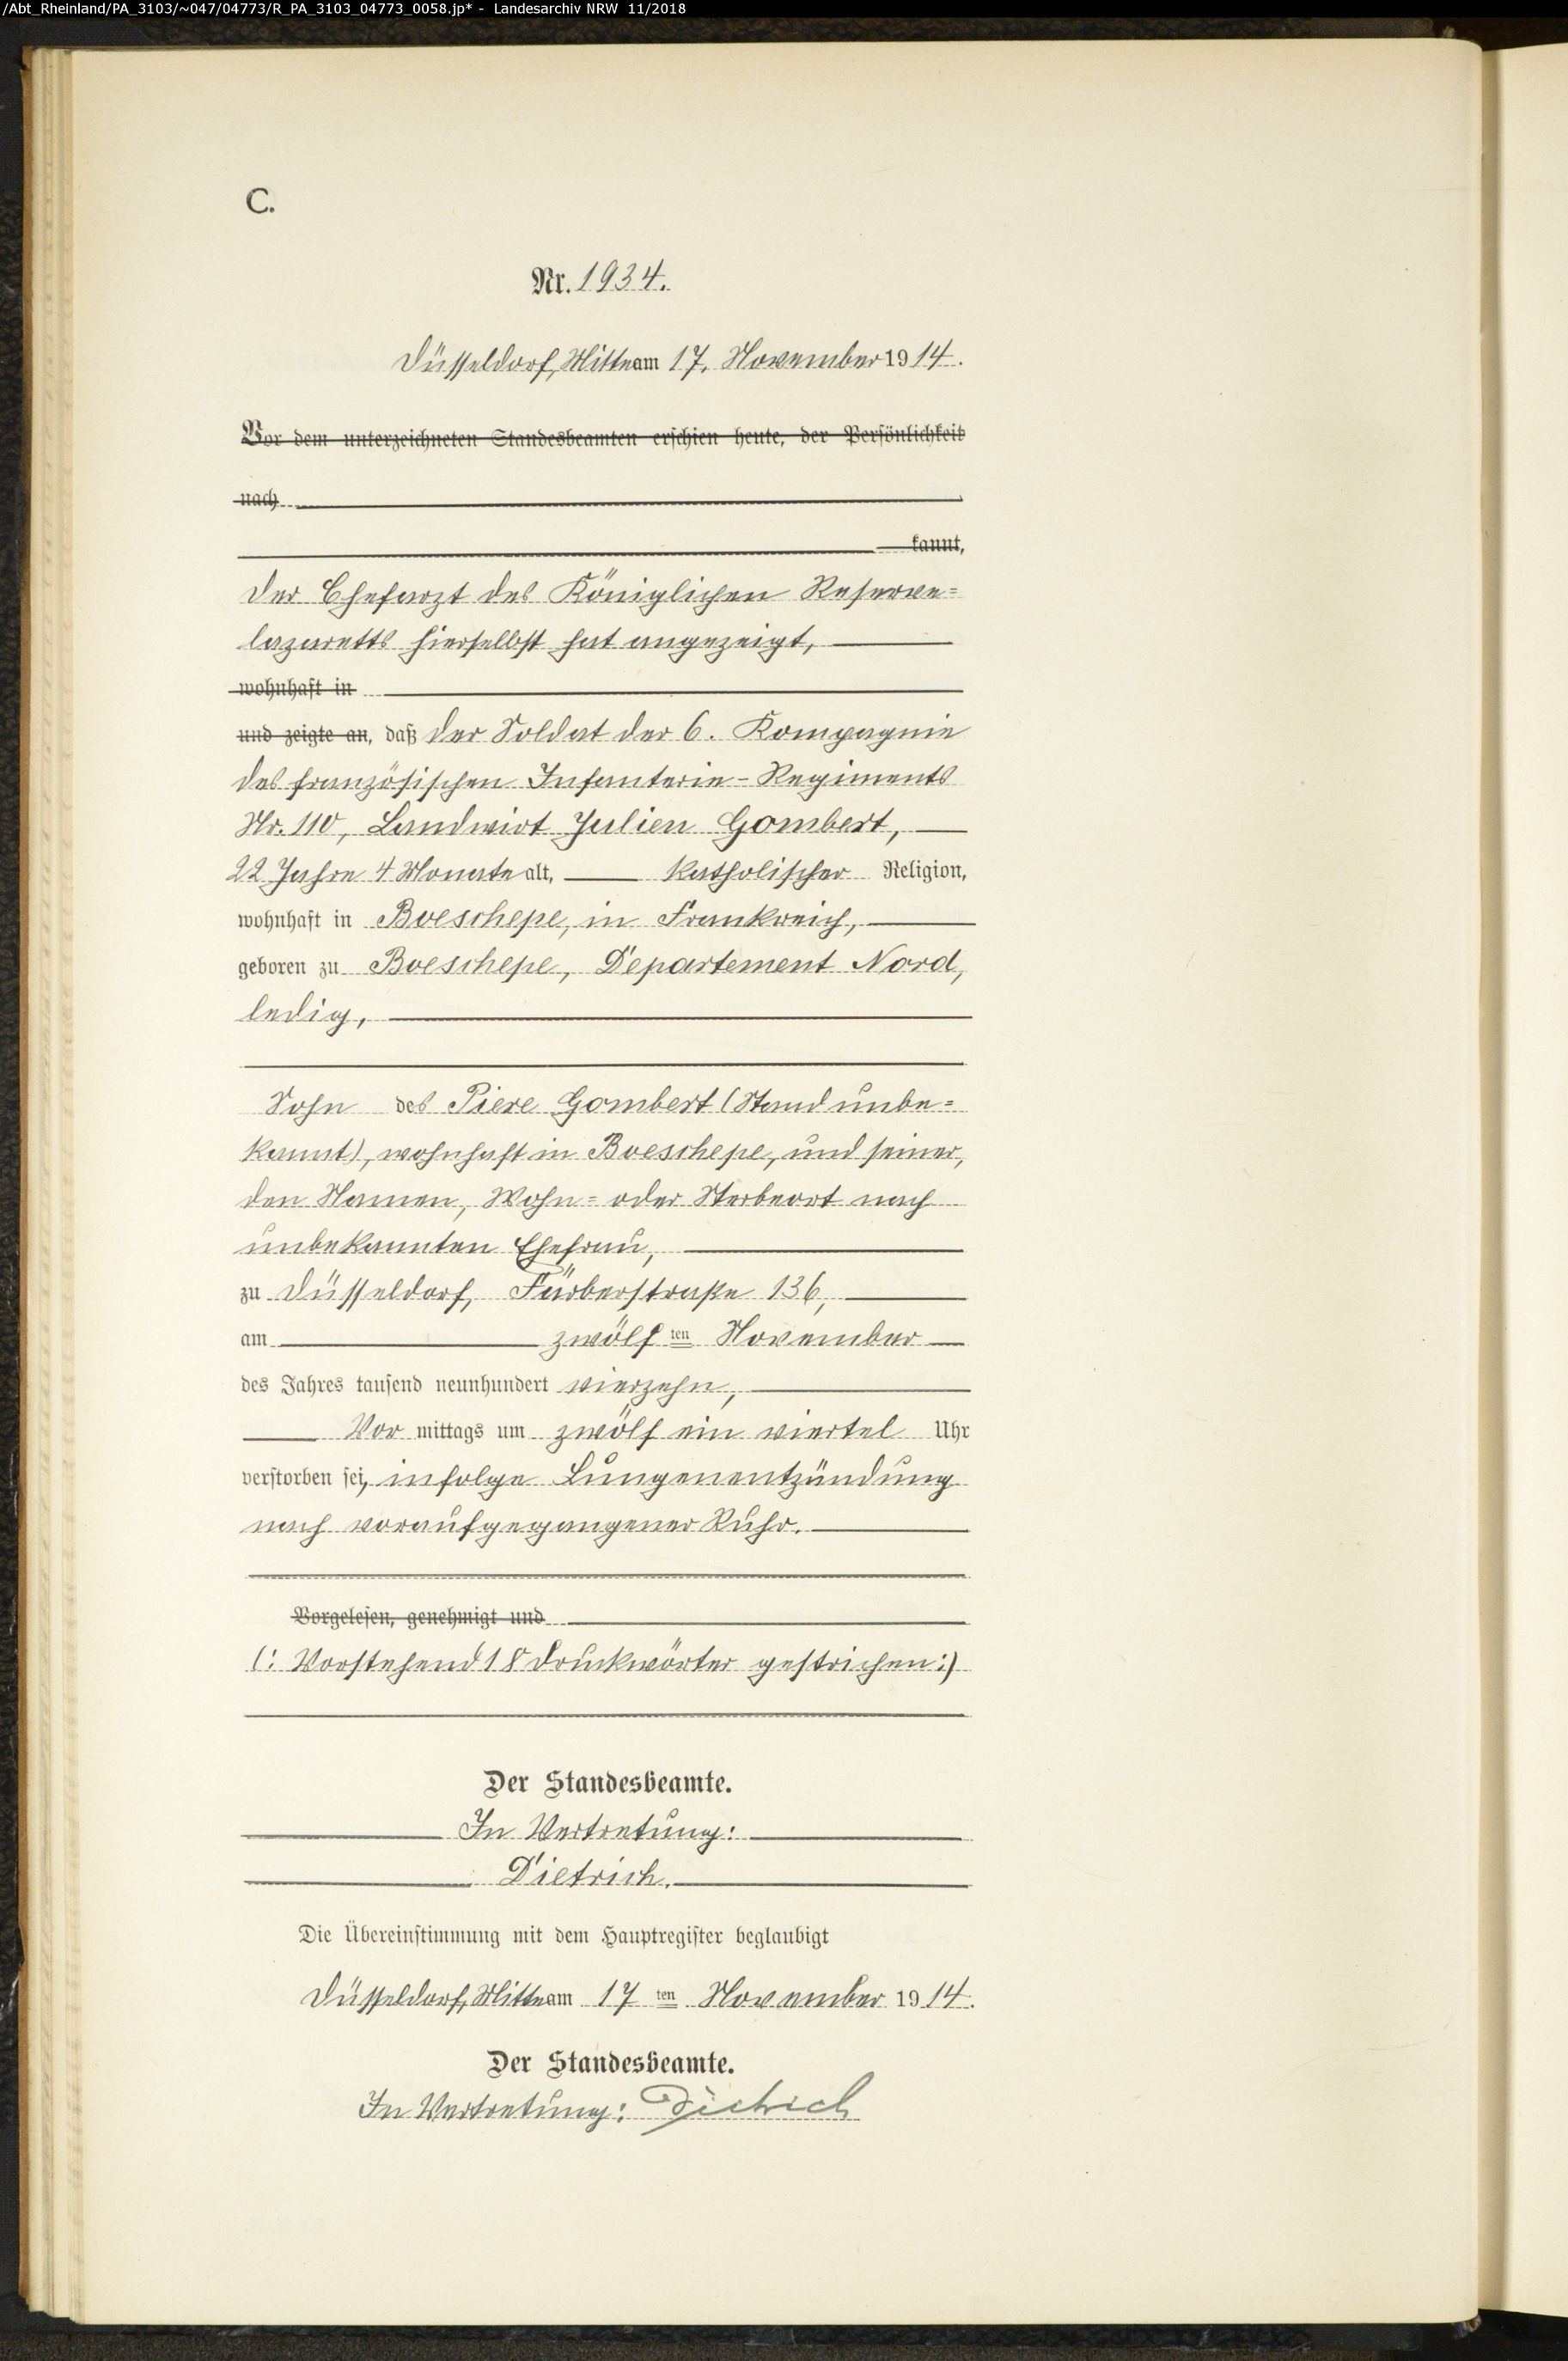 /Abt_Rheinland/PA_3103/~047/04773/R_PA_3103_04773_0058.jp* - Landesarchiv NRW 11/2018
C.
Nr. 1934.
Düsseldorf, Mitte am 17. November 1914.
Vor dem unterzeichneten Standesbeamten erschien heute, der Persönlichkeit
nach
kannt,
der Chefarzt des Königlichen Reserve=
lazaretts hierselbst hat angezeigt,
wohnhaft in
und zeigte an, daß der Soldat der 6. Kompagnie
des französischen Infanterie-Regiments
Nr. 110, Landwirt Julien Gombert,
22 Jahre 4 Monate alt, katholischer Religion,
wohnhaft in Boeschepe, in Frankreich,
geboren zu Boeschepe, Departement Nord,
ledig,
Sohn des Piere Gombert (Stand unbe=
kannt), wohnhaft in Boeschepe, und seiner,
den Namen, Wohn= oder Sterbeort nach
unbekannten Ehefrau,
zu Düsseldorf, Färberstraße 136,
am zwölf ten November
des Jahres tausend neunhundert vierzehn,
Vor mittags um zwölf ein viertel Uhr
verstorben sei, infolge Lungenentzündung
nach voraufgegangener Ruhr.
Vorgelesen, genehmigt und
(: Vorstehend 18 Druckwörter gestrichen :)
Der Standesbeamte.
In Vertretung:
Dietrich.
Die Übereinstimmung mit dem Hauptregister beglaubigt
Düsseldorf, Mitte am 17 ten November 1914.
Der Standesbeamte.
In Vertretung: Dietrich